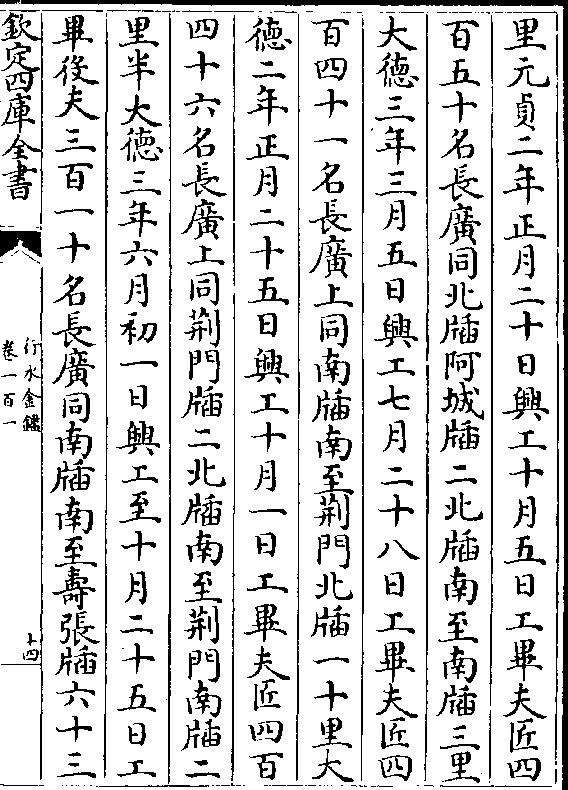 里元貞二年正月二十日興工十月五日工畢夫匠四
百五十名長廣同北牐阿城牐二北牐南至南牐三里
大德三年三月五日興工七月二十八日工畢夫匠四
百四十一名長廣上同南牐南至荆門北牐一十里大
德二年正月二十五日興工十月一日工畢夫匠四百
四十六名長廣上同荆門牐二北牐南至荆門南牐二
里半大德三年六月初一日興工至十月二十五日工
畢役夫三百一十名長廣同南牐南至壽張牐六十三
欽定四庫全書
行水金鑑
卷一百一
十四